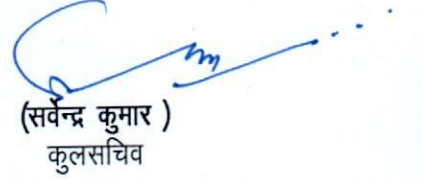 (सर्वेन्द्र कुमार )
कुलसचिव